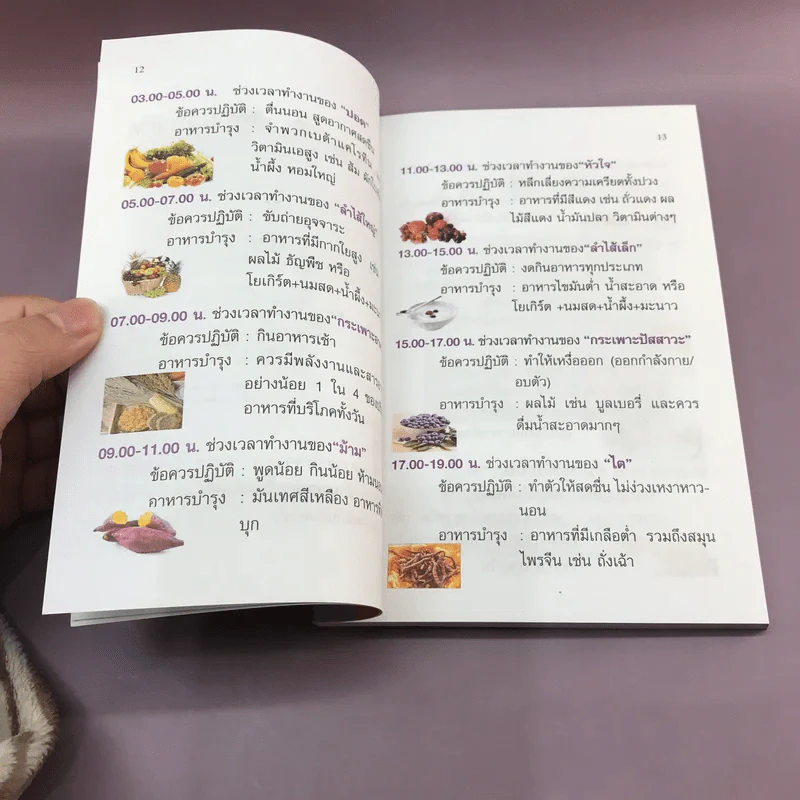 12
03.00-05.00 น. ช่วงเวลาทำงานของ "ปอด"
ข้อควรปฏิบัติ : ตื่นนอน สูดอากาศสดชื่น
อาหารบำรุง : จำพวกเบต้าแคโรทีน
วิตามินเอสูง เช่น ส้ม
น้ำผึ้ง หอมใหญ่
05.00-07.00 น. ช่วงเวลาทำงานของ "ลำไส้ใหญ่"
ข้อควรปฏิบัติ : ขับถ่ายอุจจาระ
อาหารบำรุง : อาหารที่มีกากใยสูง เช่น
ผลไม้ ธัญพืช หรือ
โยเกิร์ต+นมสด+น้ำผึ้ง+มะนาว
07.00-09.00 น. ช่วงเวลาทำงานของ
ข้อควรปฏิบัติ : กินอาหารเช้า
อาหารบำรุง : ควรมีพลังงานและ
อย่างน้อย 1 ใน 4
อาหารที่บริโภคทั้งวัน
09.00-11.00 น. ช่วงเวลาทำงานของ"ม้าม"
ข้อควรปฏิบัติ : พูดน้อย กินน้อย
อาหารบำรุง : มันเทศสีเหลือง
บุก
13
11.00-13.00 น. ช่วงเวลาทำงานของ"หัวใจ"
ข้อควรปฏิบัติ : หลีกเลี่ยงความเครียดทั้งปวง
อาหารบำรุง : อาหารที่มีสีแดง เช่น ถั่วแดง ผล
ไม้สีแดง น้ำมันปลา วิตามินต่างๆ
13.00-15.00 น. ช่วงเวลาทำงานของ"ลำไส้เล็ก"
ข้อควรปฏิบัติ : งดกินอาหารทุกประเภท
อาหารบำรุง : อาหารไขมันต่ำ น้ำสะอาด หรือ
โยเกิร์ต +นมสด+น้ำผึ้ง+มะนาว
15.00-17.00 น. ช่วงเวลาทำงานของ "กระเพาะปัสสาวะ"
ข้อควรปฏิบัติ : ทำให้เหงื่อออก (ออกกำลังกาย/
อบตัว)
อาหารบำรุง : ผลไม้ เช่น บูลเบอรี่ และควร
ดื่มน้ำสะอาดมากๆ
17.00-19.00 น. ช่วงเวลาทำงานของ "ไต"
ข้อควรปฏิบัติ : ทำตัวให้สดชื่น ไม่ง่วงเหงาหาว-
นอน
อาหารบำรุง : อาหารที่มีเกลือต่ำ รวมถึงสมุน
ไพรจีน เช่น ถั่งเฉ้า